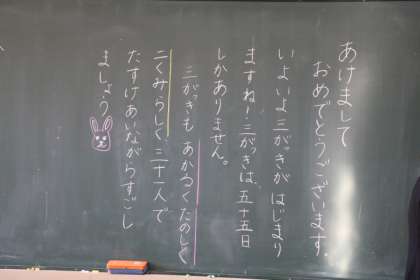 あけまして
おめでとうございます。
いよいよ三がっきが はじまり
ますね！三がっきは、五十五日
しかありません。
三がっきも あかるく たのしく
二くみらしく 三十一人で
たすけあいながらすごし
ましょう